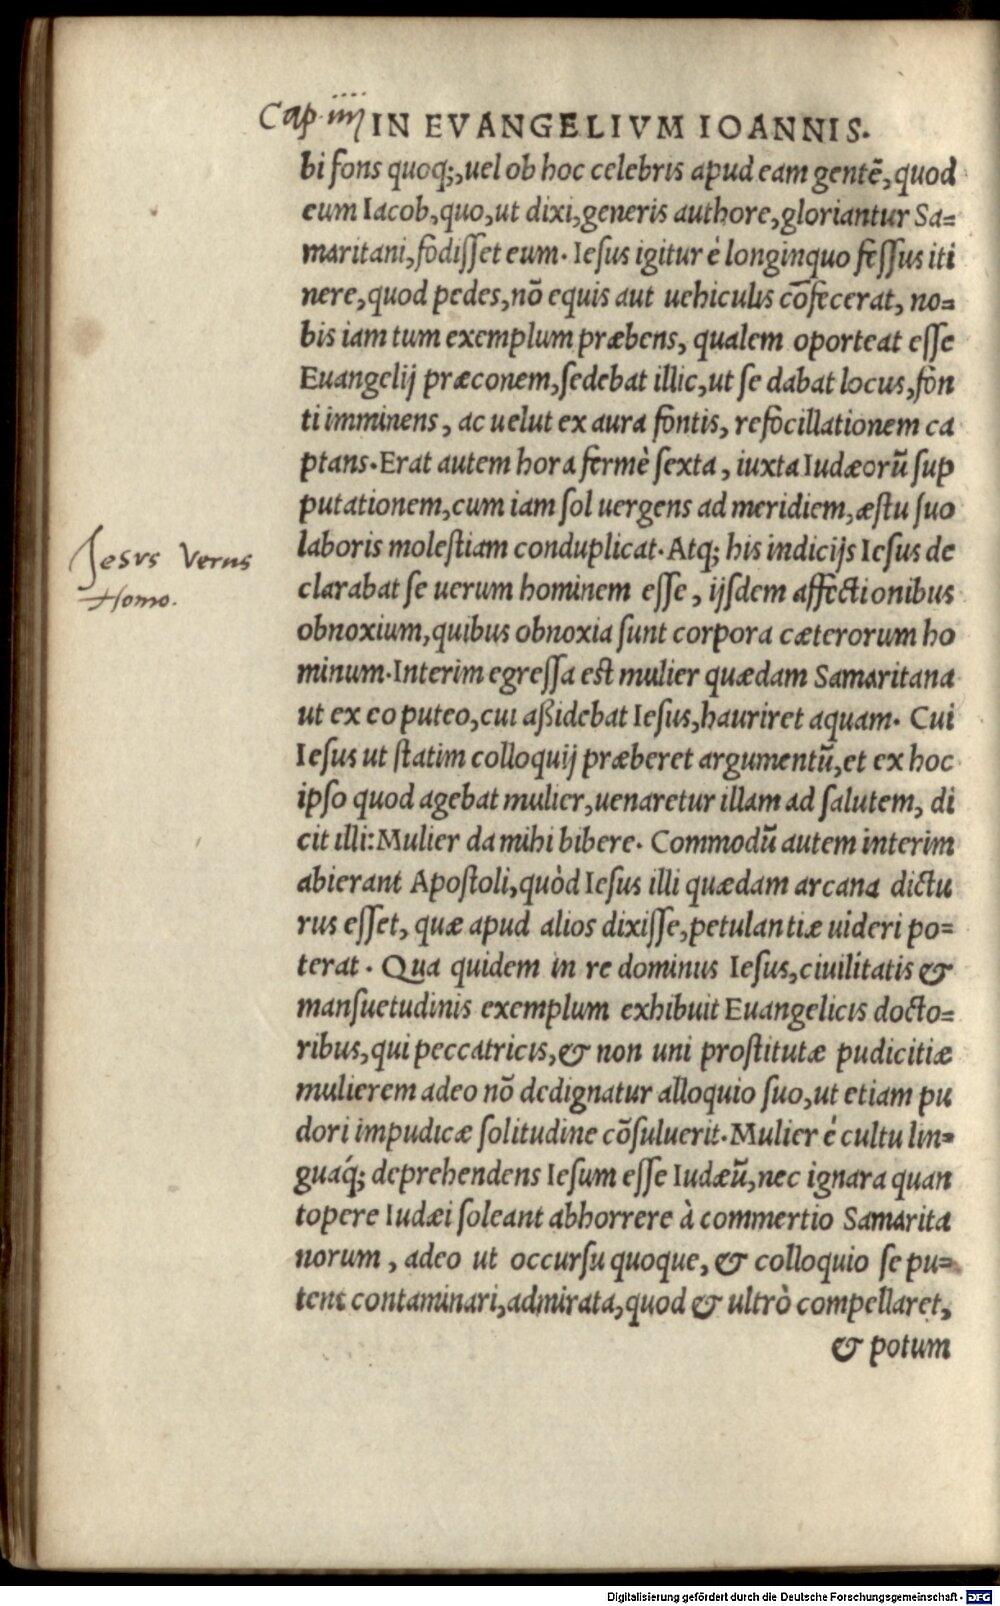 Cap. iiij IN EVANGELIVM IOANNIS.
bi fons quoq;, uel ob hoc celebris apud eam gentẽ, quod
eum Iacob, quo, ut dixi, generis authore, gloriantur Sa=
maritani, fodisset eum. Iesus igitur è longinquo fessus iti
nere, quod pedes, nõ equis aut uehiculis cõfecerat, no=
bis iam tum exemplum præbens, qualem oporteat esse
Euangelij præconem, sedebat illic, ut se dabat locus, fon
ti imminens, ac uelut ex aura fontis, refocillationem ca
ptans. Erat autem hora fermè sexta, iuxta Iudæorũ sup
putationem, cum iam sol uergens ad meridiem, æstu suo
laboris molestiam conduplicat. Atq; his indicijs Iesus de
Jesus Verus
Homo.
clarabat se uerum hominem esse, ijsdem affectionibus
obnoxium, quibus obnoxia sunt corpora cæterorum ho
minum. Interim egressa est mulier quædam Samaritana
ut ex eo puteo, cui aßidebat Iesus, hauriret aquam. Cui
Iesus ut statim colloquij præberet argumentũ, et ex hoc
ipso quod agebat mulier, uenaretur illam ad salutem, di
cit illi: Mulier da mihi bibere. Commodũ autem interim
abierant Apostoli, quòd Iesus illi quædam arcana dictu
rus esset, quæ apud alios dixisse, petulantiæ uideri po=
terat. Qua quidem in re dominus Iesus, ciuilitatis &
mansuetudinis exemplum exhibuit Euangelicis docto=
ribus, qui peccatricis, & non uni prostitutæ pudicitiæ
mulierem adeo nõ dedignatur alloquio suo, ut etiam pu
dori impudicæ solitudine cõsuluerit. Mulier è cultu lin=
guáq; deprehendens Iesum esse Iudæũ, nec ignara quan
topere Iudæi soleant abhorrere à commertio Samarita
norum, adeo ut occursu quoque, & colloquio se pu=
tent contaminari, admirata, quod & ultrò compellaret,
& potum
Digitalisierung gefördert durch die Deutsche Forschungsgemeinschaft - DFG